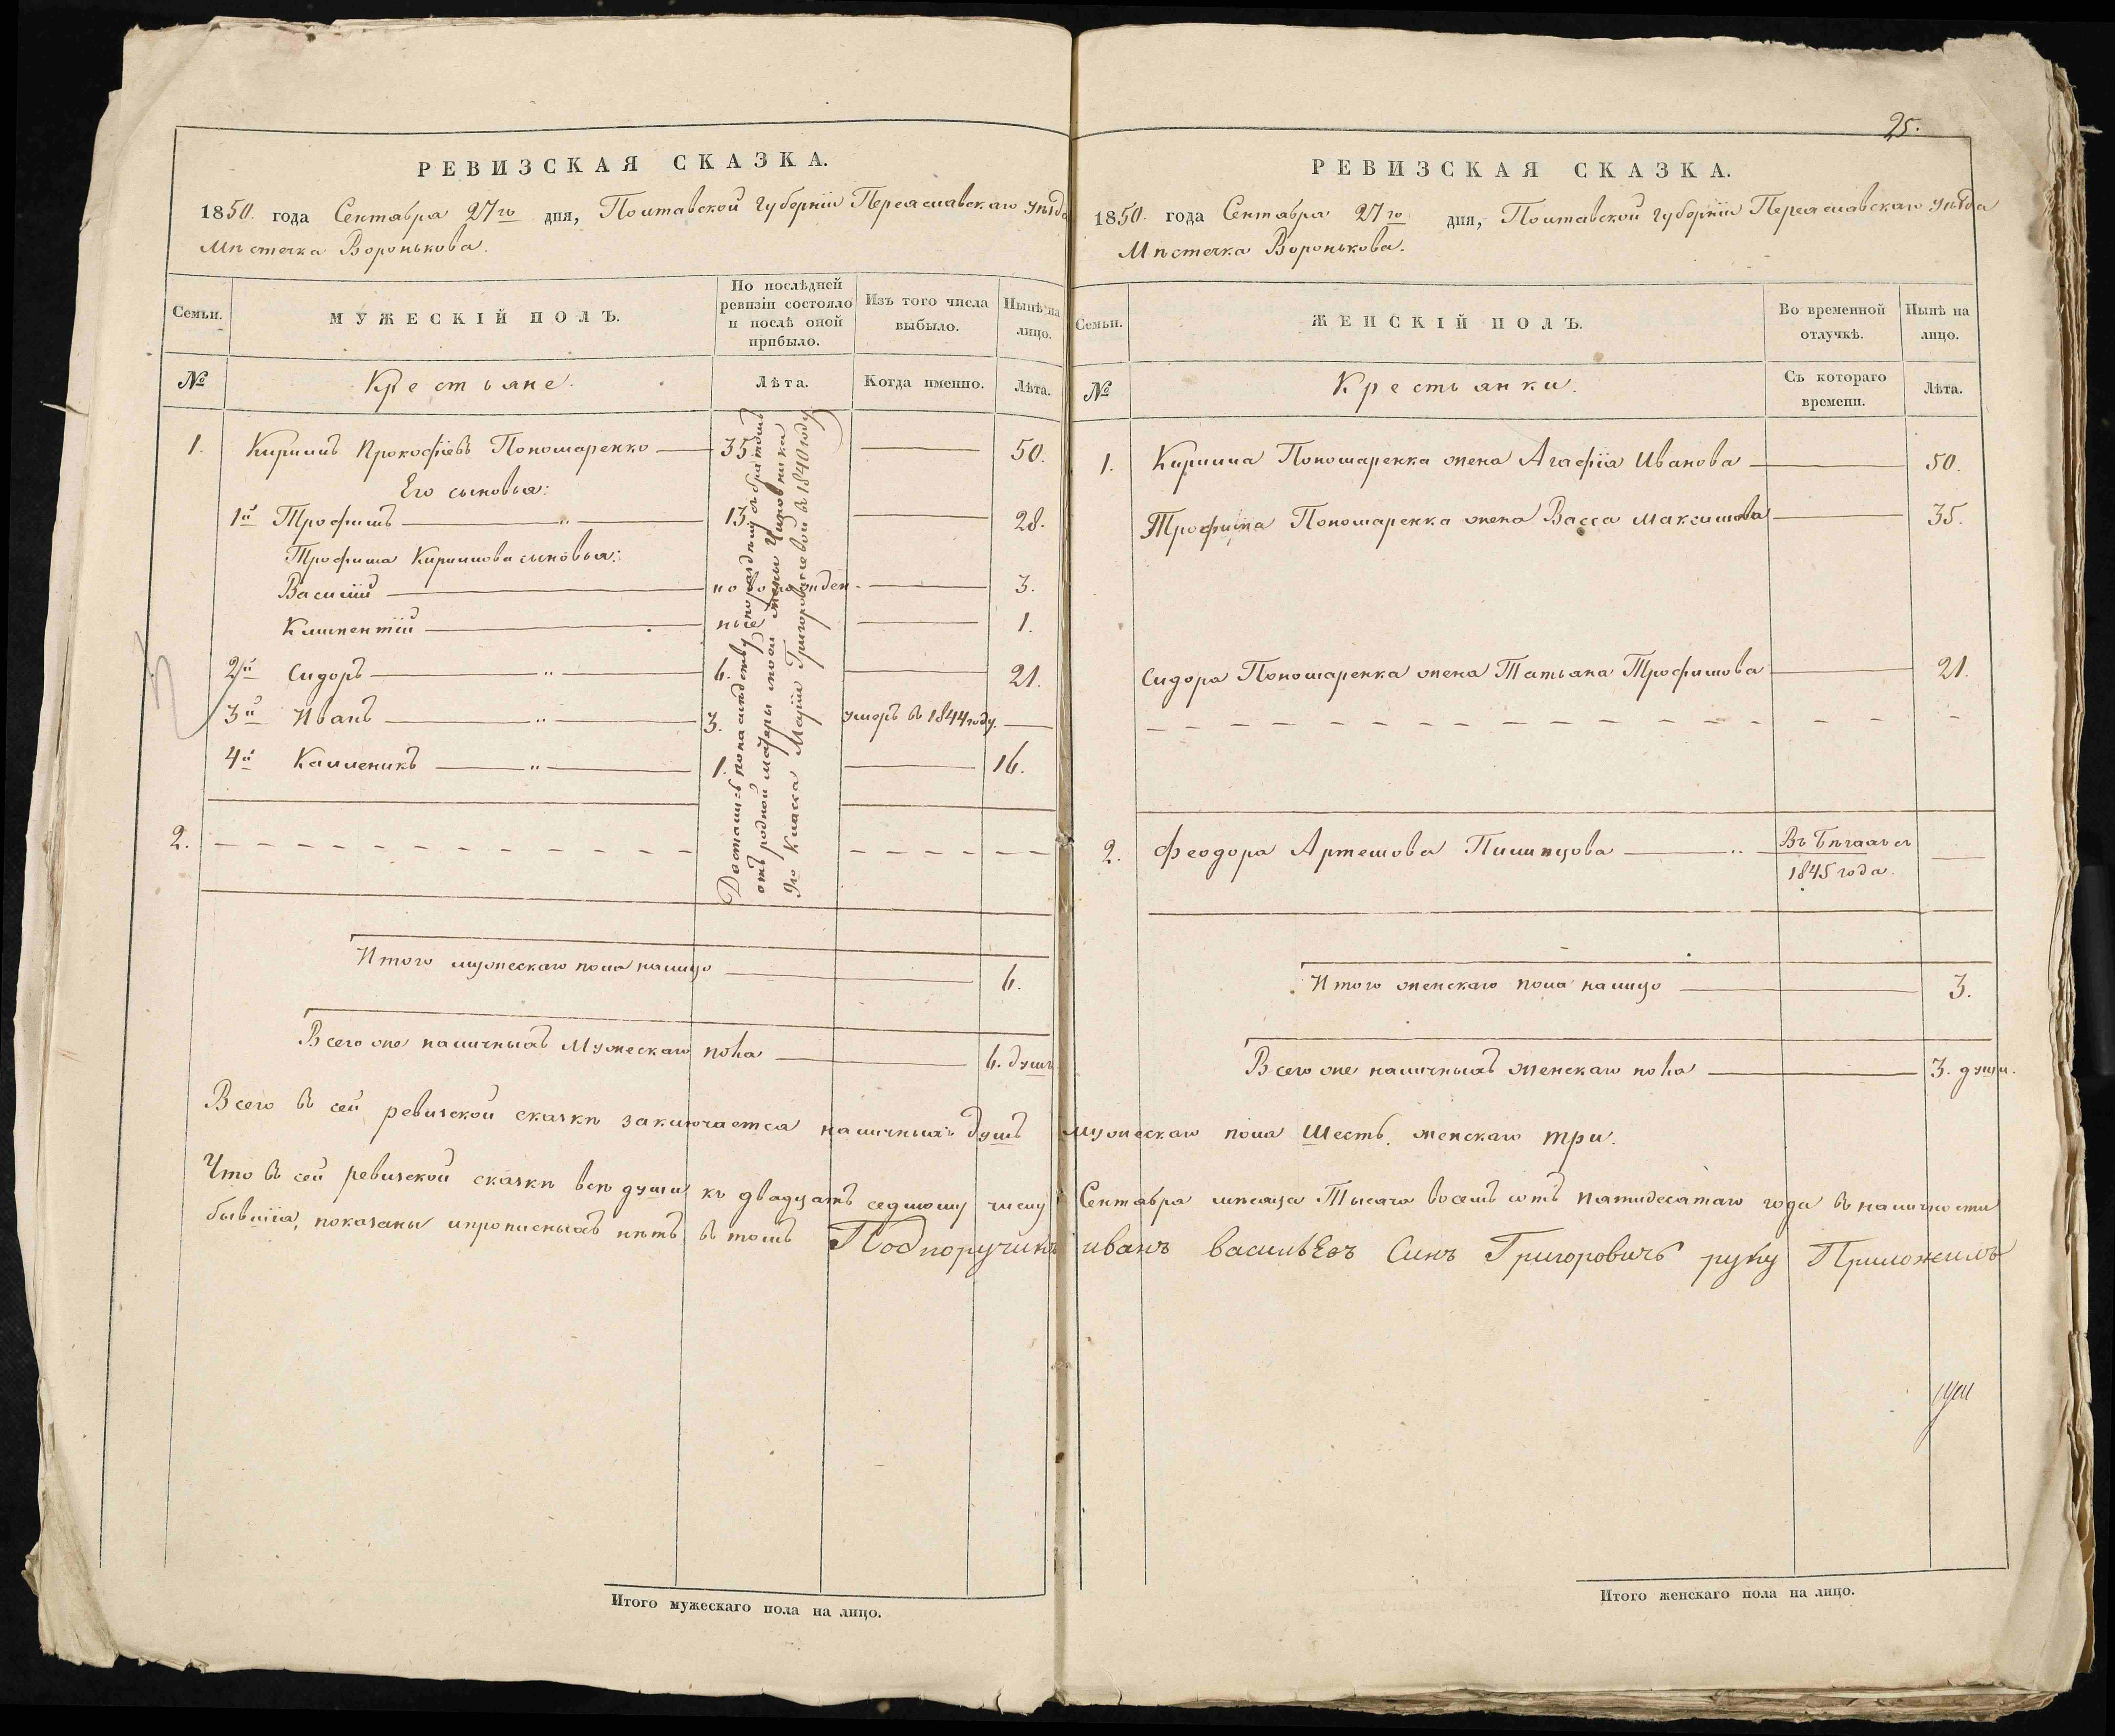 РЕВИЗСКАЯ СКАЗКА.
1850. года Сентабра 27го дня, Полтавской губерніи Переаславскаго уѣзда
Мѣстечка Воронькова.
Семьи.
МУЖЕСКІЙ ПОЛЪ.
По послѣдней ревизіи состояло и послѣ оной прибыло.
Изъ того числа выбыло.
Нынѣ на лицо.
№
Крестьяне.
Лѣта.
Когда именно.
Лѣта.
1. Кирилъ Прокофіевъ Пономаренко 35. 50.
Его сыновья:
1й Трофимъ " 13. 28.
Трофима Кирилова сыновья:
Василій новорожден- 3.
Климентій ные 1.
2й Сидоръ " 6. 21.
3й Иванъ " 3. умеръ въ 1844 году.
4й Каленикъ " 1. 16.
Достались по наслѣдству
отъ родной матери моей жены Чиновника
9го Класса Маріи Григоровичевой въ 1840 году
2.
Итого мужескаго пола налицо 6.
Всего же наличныхъ Мужескаго пола 6. душъ
Всего въ сей ревизской сказкѣ заключается наличныхъ душъ мужескаго пола шесть, женскаго три.
Что въ сей ревизской сказкѣ всѣ души къ двадцать седмому числу Сентабра мѣсяца Тысяча восемъ сотъ пятидесятаго года въ наличности
бывшіа, показаны и прописныхъ нѣтъ въ томъ Подпоручикъ иванъ васильевъ Синъ Григоровичъ руку Приложилъ
Итого мужескаго пола на лицо.
25.
РЕВИЗСКАЯ СКАЗКА.
1850. года Сентабра 27го дня, Полтавской губерніи Переаславскаго уѣзда
Мѣстечка Воронькова.
Семьи.
ЖЕНСКІЙ ПОЛЪ.
Во временной отлучкѣ.
Нынѣ на лицо.
№
Крестьянки.
Съ котораго времени.
Лѣта.
1. Кирила Пономаренка жена Агафіа Иванова 50.
Трофима Пономаренка жена Васса Максимова 35.
Сидора Пономаренка жена Татьяна Трофимова 21.
2. Феодора Артемова Пилипцова " Въ бѣгахъ съ
1845 года.
Итого женскаго пола налицо 3.
Всего же наличныхъ женскаго пола 3. души.
Итого женскаго пола на лицо.